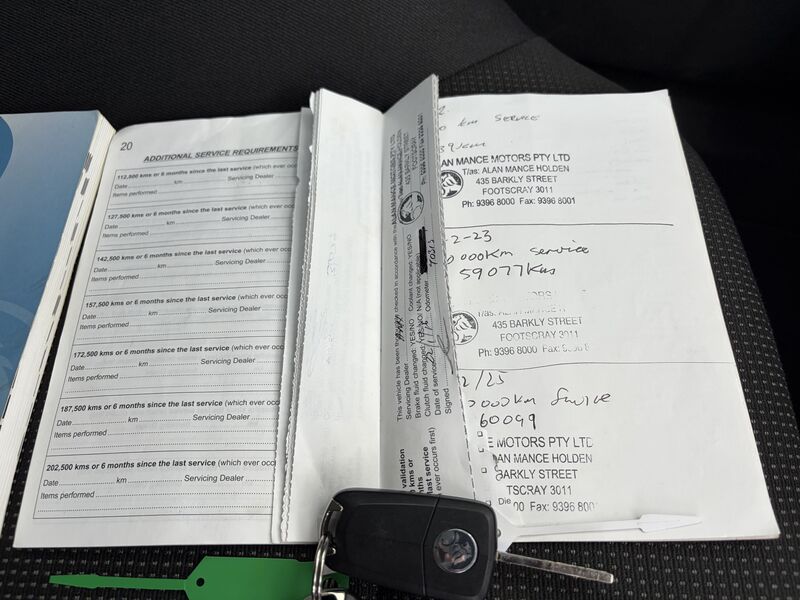 20
ADDITIONAL SERVICE REQUIREMENTS
112,500 kms or 6 months since the last service (which ever occ
Date km Servicing Dealer
Items performed
127,500 kms or 6 months since the last service (which ever occ
Date km Servicing Dealer
Items performed
142,500 kms or 6 months since the last service (which ever occ
Date km Servicing Dealer
Items performed
157,500 kms or 6 months since the last service (which ever occ
Date km Servicing Dealer
Items performed
172,500 kms or 6 months since the last service (which ever occ
Date km Servicing Dealer
Items performed
187,500 kms or 6 months since the last service (which ever occ
Date km Servicing Dealer
Items performed
202,500 kms or 6 months since the last service (which ever occ
Date km Servicing Dealer
Items performed
This vehicle has been checked in accordance with the
Servicing Dealer
Brake fluid changed: YES/NO Coolant changed: YES/NO
Clutch fluid changed: YES/NO/ N/A (not applicable)
Date of service Odometer
Signed
validation
kms or
last service
ever occurs first)
km SERVICE
AN MANCE MOTORS PTY LTD
T/as: ALAN MANCE HOLDEN
435 BARKLY STREET
FOOTSCRAY 3011
Ph: 9396 8000 Fax: 9396 8001
2-23
0000km service
59077kms
435 BARKLY STREET
FOOTSCRAY 3011
Ph: 9396 8000 Fax:
2/25
0000km Service
60099
E MOTORS PTY LTD
AN MANCE HOLDEN
BARKLY STREET
TSCRAY 3011
00 Fax: 9396 800